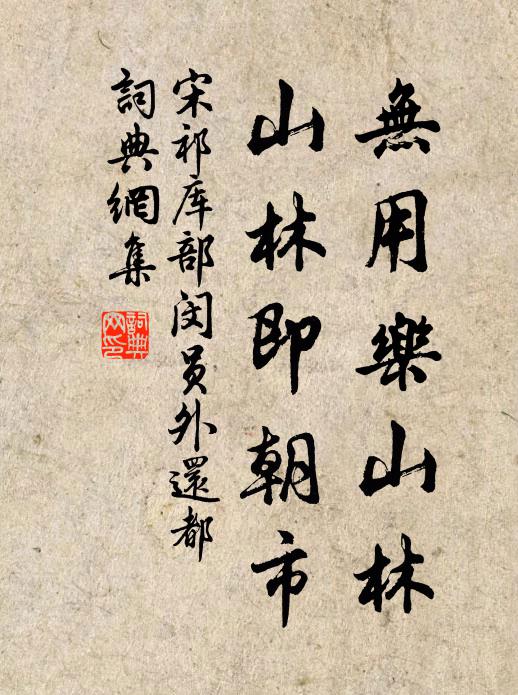 無用樂山林
山林即朝市
宋祁库部闵员外還都
詞典網集
詞典
网印